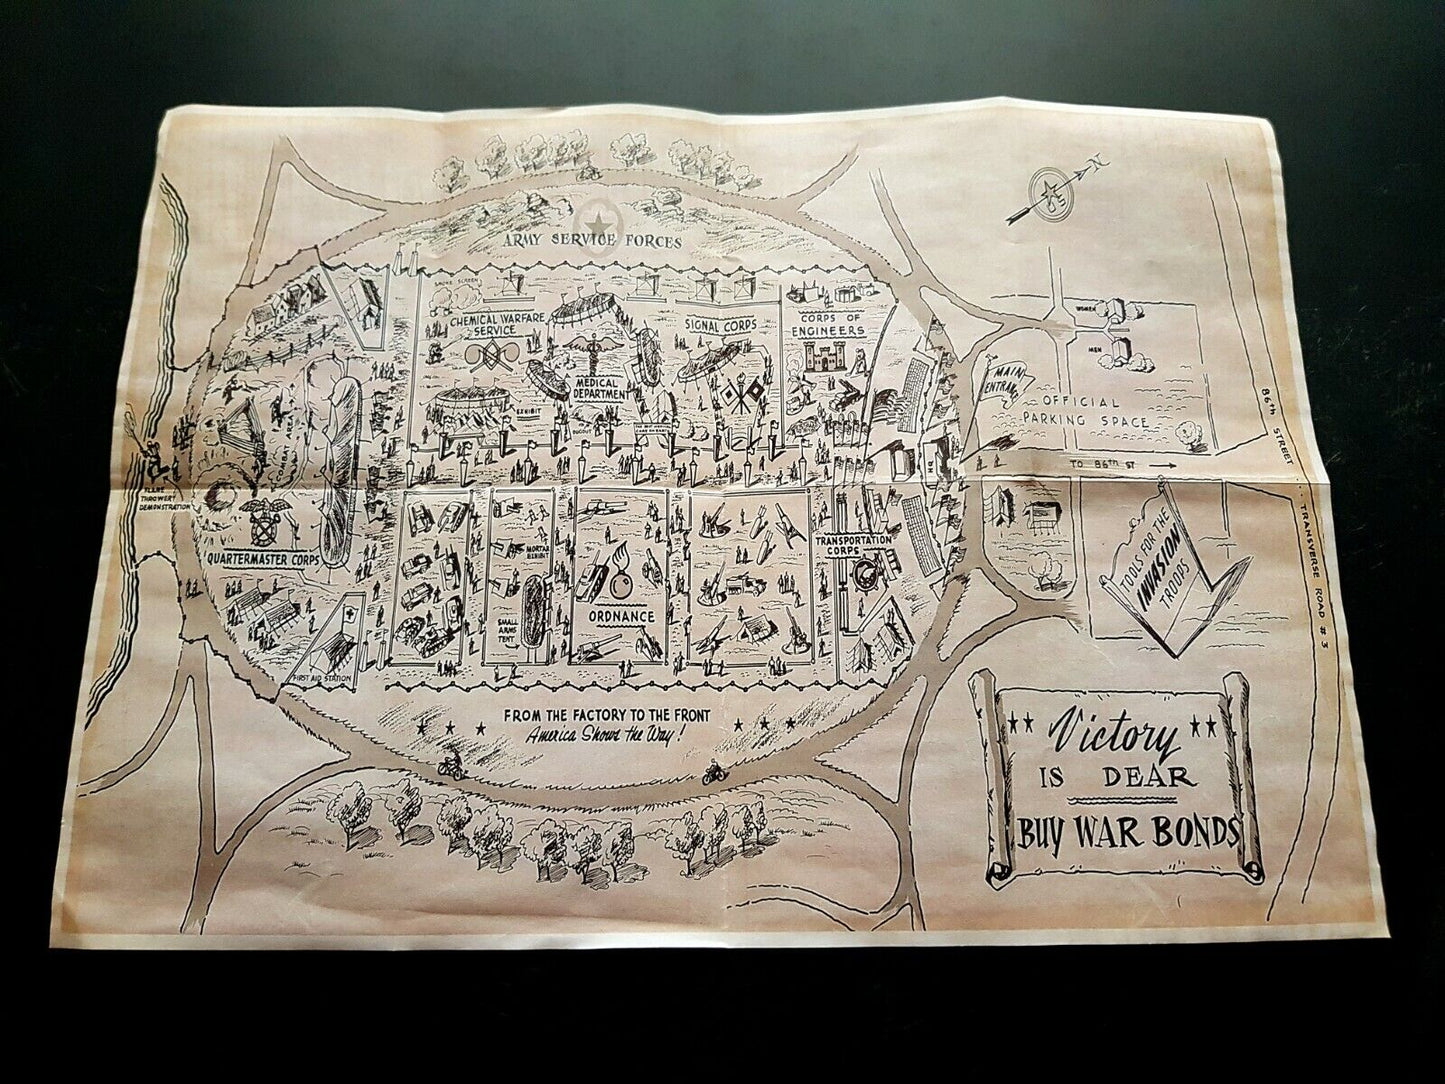 N
ARMY SERVICE FORCES
SMOKE SCREEN
CHEMICAL WARFARE
SERVICE
SIGNAL CORPS
CORPS OF
ENGINEERS
MEDICAL
DEPARTMENT
EXHIBIT
WOMEN
MEN
MAIN
ENTRANCE
OFFICIAL
PARKING SPACE
TO 86TH ST
HQ
86TH STREET
TRANSVERSE ROAD #3
COMBAT AREA
FLAME
THROWER
DEMONSTRATION
QUARTERMASTER CORPS
FIRST AID STATION
MORTAR
EXHIBIT
SMALL
ARMS
TENT
ORDNANCE
TRANSPORTATION
CORPS
TOOLS FOR THE
INVASION
TROOPS
FROM THE FACTORY TO THE FRONT
America Shows the Way!
Victory
IS DEAR
BUY WAR BONDS